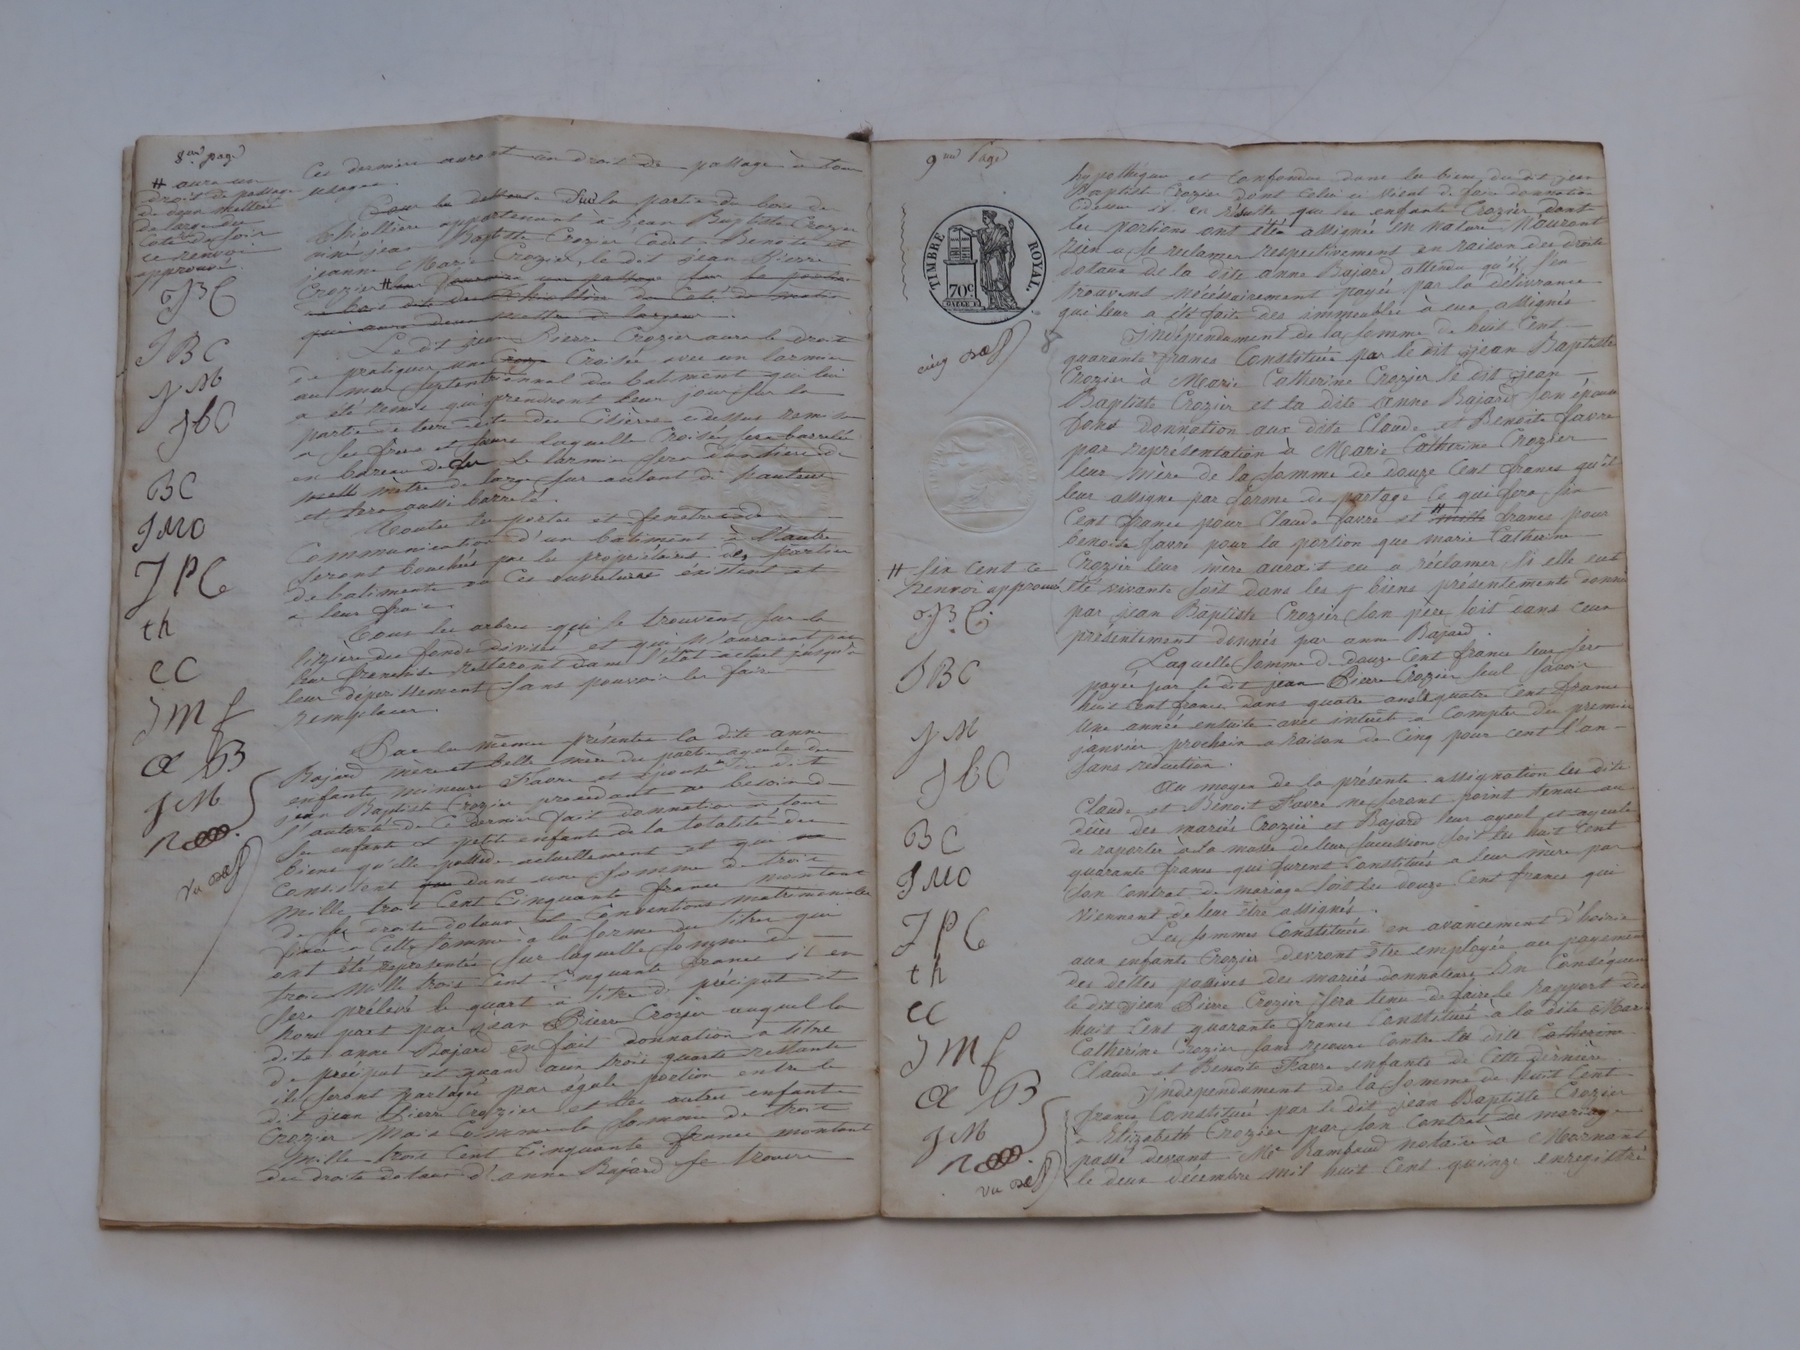 8me page
# aura un
droit de passage
de deux mettres
de large du
Coté du soir
ce renvoi
approuvé.
JBC
JBC
JM
JbC
BC
JMC
JPC
th
CC
JMf
CB
JM
Vu
Ces derniers auront un droit de passage à tous
usages.
Pour la desserte Dud la partie de bois de
Chiollière appartenant à Jean Baptiste Crozier
ainé jean Baptiste Crozier Cadet Benoite et
jeanne Marie Crozier, le dit jean Pierre
Crozier # 
Le dit jean Pierre Crozier aura le droit
de pratiquer une Croisée avec un larmier
au mur septentrionnal du batiment qui lui
a été remis qui prendront leur jour sur la
partie de terre dite des Cilières cidessus remise
a ses frères et soeurs laquelle Croisée sera barrelée
en bareau de fer Le larmier sera d'un tiers de
mètre de large sur autant de hauteur
et sera aussi barrelé.
Toutes les portes et fenêtres de
Communication d'un batiment à l'autre
seront bouchées par les propriétaires des parties
de batiments ou ces ouvertures éxistent et
à leur frais.
Tous les arbres qui se trouvent sur la
lizière des fonds divisés et qui n'auraient pas
leur franchise resteront dans l'état actuel jusqu'à
leur dépérissement sans pouvoir les faire
remplacer.
Par les mêmes présentes la dite anne
Bajard mère et belle mère des parties ayeule des
enfants mineurs Favre et épouse du dit
jean Baptiste Crozier procédant au besoin de
l'autorité de ce dernier fait donnation à tous
ses enfants et petits enfants de la totalité des
biens qu'elle possède actuellement et qui
Consistent dans une somme de trois
mille trois Cent Cinquante francs montant
de ses droits dotaux et Conventions matrimoniales
fixés à Cette somme à la forme des titres qui
ont été représentés sur laquelle somme de
trois mille trois Cent Cinquante francs il en
sera prélevé le quart à titre de préciput et
hors part par jean Pierre Crozier auquel la
dite anne Bajard en fait donnation à titre
de préciput et quand aux trois quarts restants
ils seront partagés par égale portion entre le
dit jean Pierre Crozier et les autres enfants
Crozier Mais Comme la somme de trois
Mille trois Cent Cinquante francs montant
des droits dotaux d'anne Bajard se trouve
9me Page
TIMBRE ROYAL.
70c
cinq
# six cent ce
renvoi approuvé
JBC
JBC
JM
JbC
BC
JMC
JPC
th
CC
JMf
CB
JM
Vu
hypothéquée et confondue dans les biens du dit jean
Baptiste Crozier dont Celui ci vient de faire donnation
Cidessus il en résulte que les enfants Crozier dont
les portions ont été assignées en nature N'auront
rien à se réclamer respectivement en raison des droits
dotaux de la dite anne Bajard attendu qu'ils s'en
trouvent nécéssairement payés par la délivrance
qui leur a été faite des immeubles à eux assignés
Indépendament de la somme de huit Cent
quarante francs Constituée par le dit jean Baptiste
Crozier à Marie Catherine Crozier le dit jean
Baptiste Crozier et la dite Anne Bajard son épouse
font donnation aux dits Claude et Benoite Favre
par représentation à Marie Catherine Crozier
leur mère de la somme de douze Cent francs qu'il
leur assigne par forme de partage Ce qui fera six
Cent francs pour Claude favre et # mille francs pour
benoite favre pour la portion que marie Catherine
Crozier leur mère aurait eu à réclamer si elle eut
été vivante soit dans les biens présentements donnés
par jean Baptiste Crozier son père soit dans ceux
présentement donnés par anne Bajard.
Laquelle somme de douze Cent francs leur sera
payée par le dit jean Pierre Crozier seul savoir
huit Cent francs dans quatre ans et quatre Cent francs
une année ensuite avec intérêt à Compter du premier
janvier prochain a raison de Cinq pour cent l'an
sans réduction.
Au moyen de la présente assignation les dits
Claude et Benoit Favre ne seront point tenus au
décès des mariés Crozier et Bajard leur ayeul et ayeule
de raporter a la masse de leur succession soit les huit Cent
quarante francs qui furent Constitués a leur mère par
son Contrat de mariage soit les douze Cent francs qui
viennent de leur être assignés.
Les sommes Constituées en avancement d'hoirie
aux enfants Crozier devront être employée au payement
des dettes passives des mariés donnateurs En Consequence
le dit jean Pierre Crozier sera tenu de faire le Rapport des
huit Cent quarante francs Constitués à la dite Marie
Catherine Crozier sans recours Contre la dite Catherine
Claude et Benoite Favre enfants de Cette dernière.
Indépendament de la somme de huit Cent
francs Constituée par le dit jean Baptiste Crozier
à Elizabeth Crozier par son Contrat de mariage
passé devant Me Rambaud notaire à Mornant
le deux décembre mil huit Cent quinze enregistré